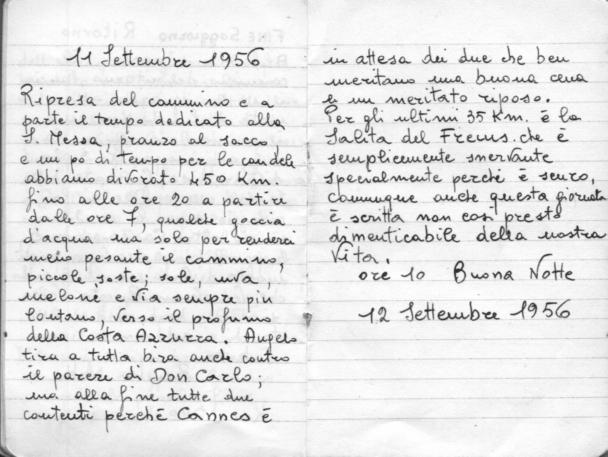 11 Settembre 1956
Ripresa del cammino e a
parte il tempo dedicato alla
S. Messa, pranzo al sacco,
e un pò di tempo per le candele
abbiamo divorato 450 Km.
fino alle ore 20 a partire
dalle ore 7, qualche goccia
d'acqua ma solo per renderci
meno pesante il cammino,
piccole soste; sole, uva,
melone e via sempre più
lontano, verso il profumo
della Costa Azzurra. Angelo
tira a tutta birra anche contro
il parere di Don Carlo;
ma alla fine tutte due
contenti perchè Cannes è
in attesa dei due che ben
meritano una buona cena
e un meritato riposo.
Per gli ultimi 35 Km. è la
Salita del Frejus. che è
semplicemente snervante
specialmente perchè è scuro,
comunque anche questa giornata
è scritta non così presto
dimenticabile della nostra
Vita.
ore 10 Buona Notte
12 Settembre 1956